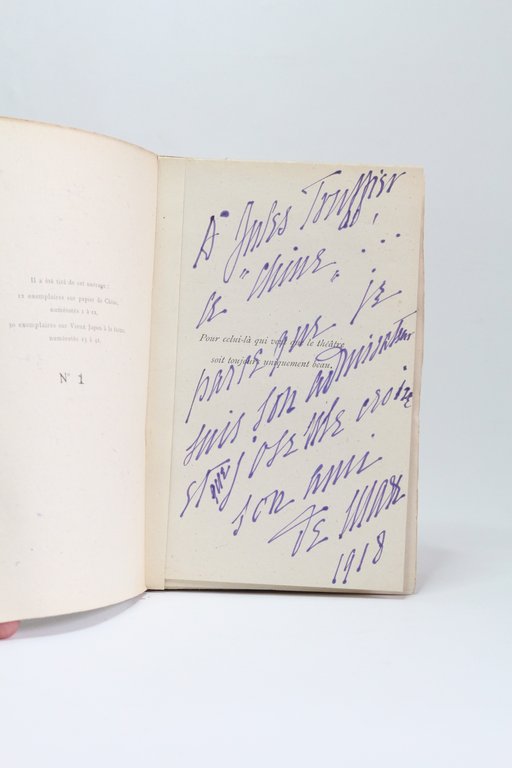 Il a été tiré de cet ouvrage :
12 exemplaires sur papier de Chine,
numérotés 1 à 12,
30 exemplaires sur Vieux Japon à la forme
numérotés 13 à 42.
N° 1
A Jules Truffier
ce "Chine" ...
Pour celui-là qui veut que le théâtre
soit toujours uniquement beau.
parce que je
suis son admirateur
et que j'ose me croire
son ami
De Max
1918